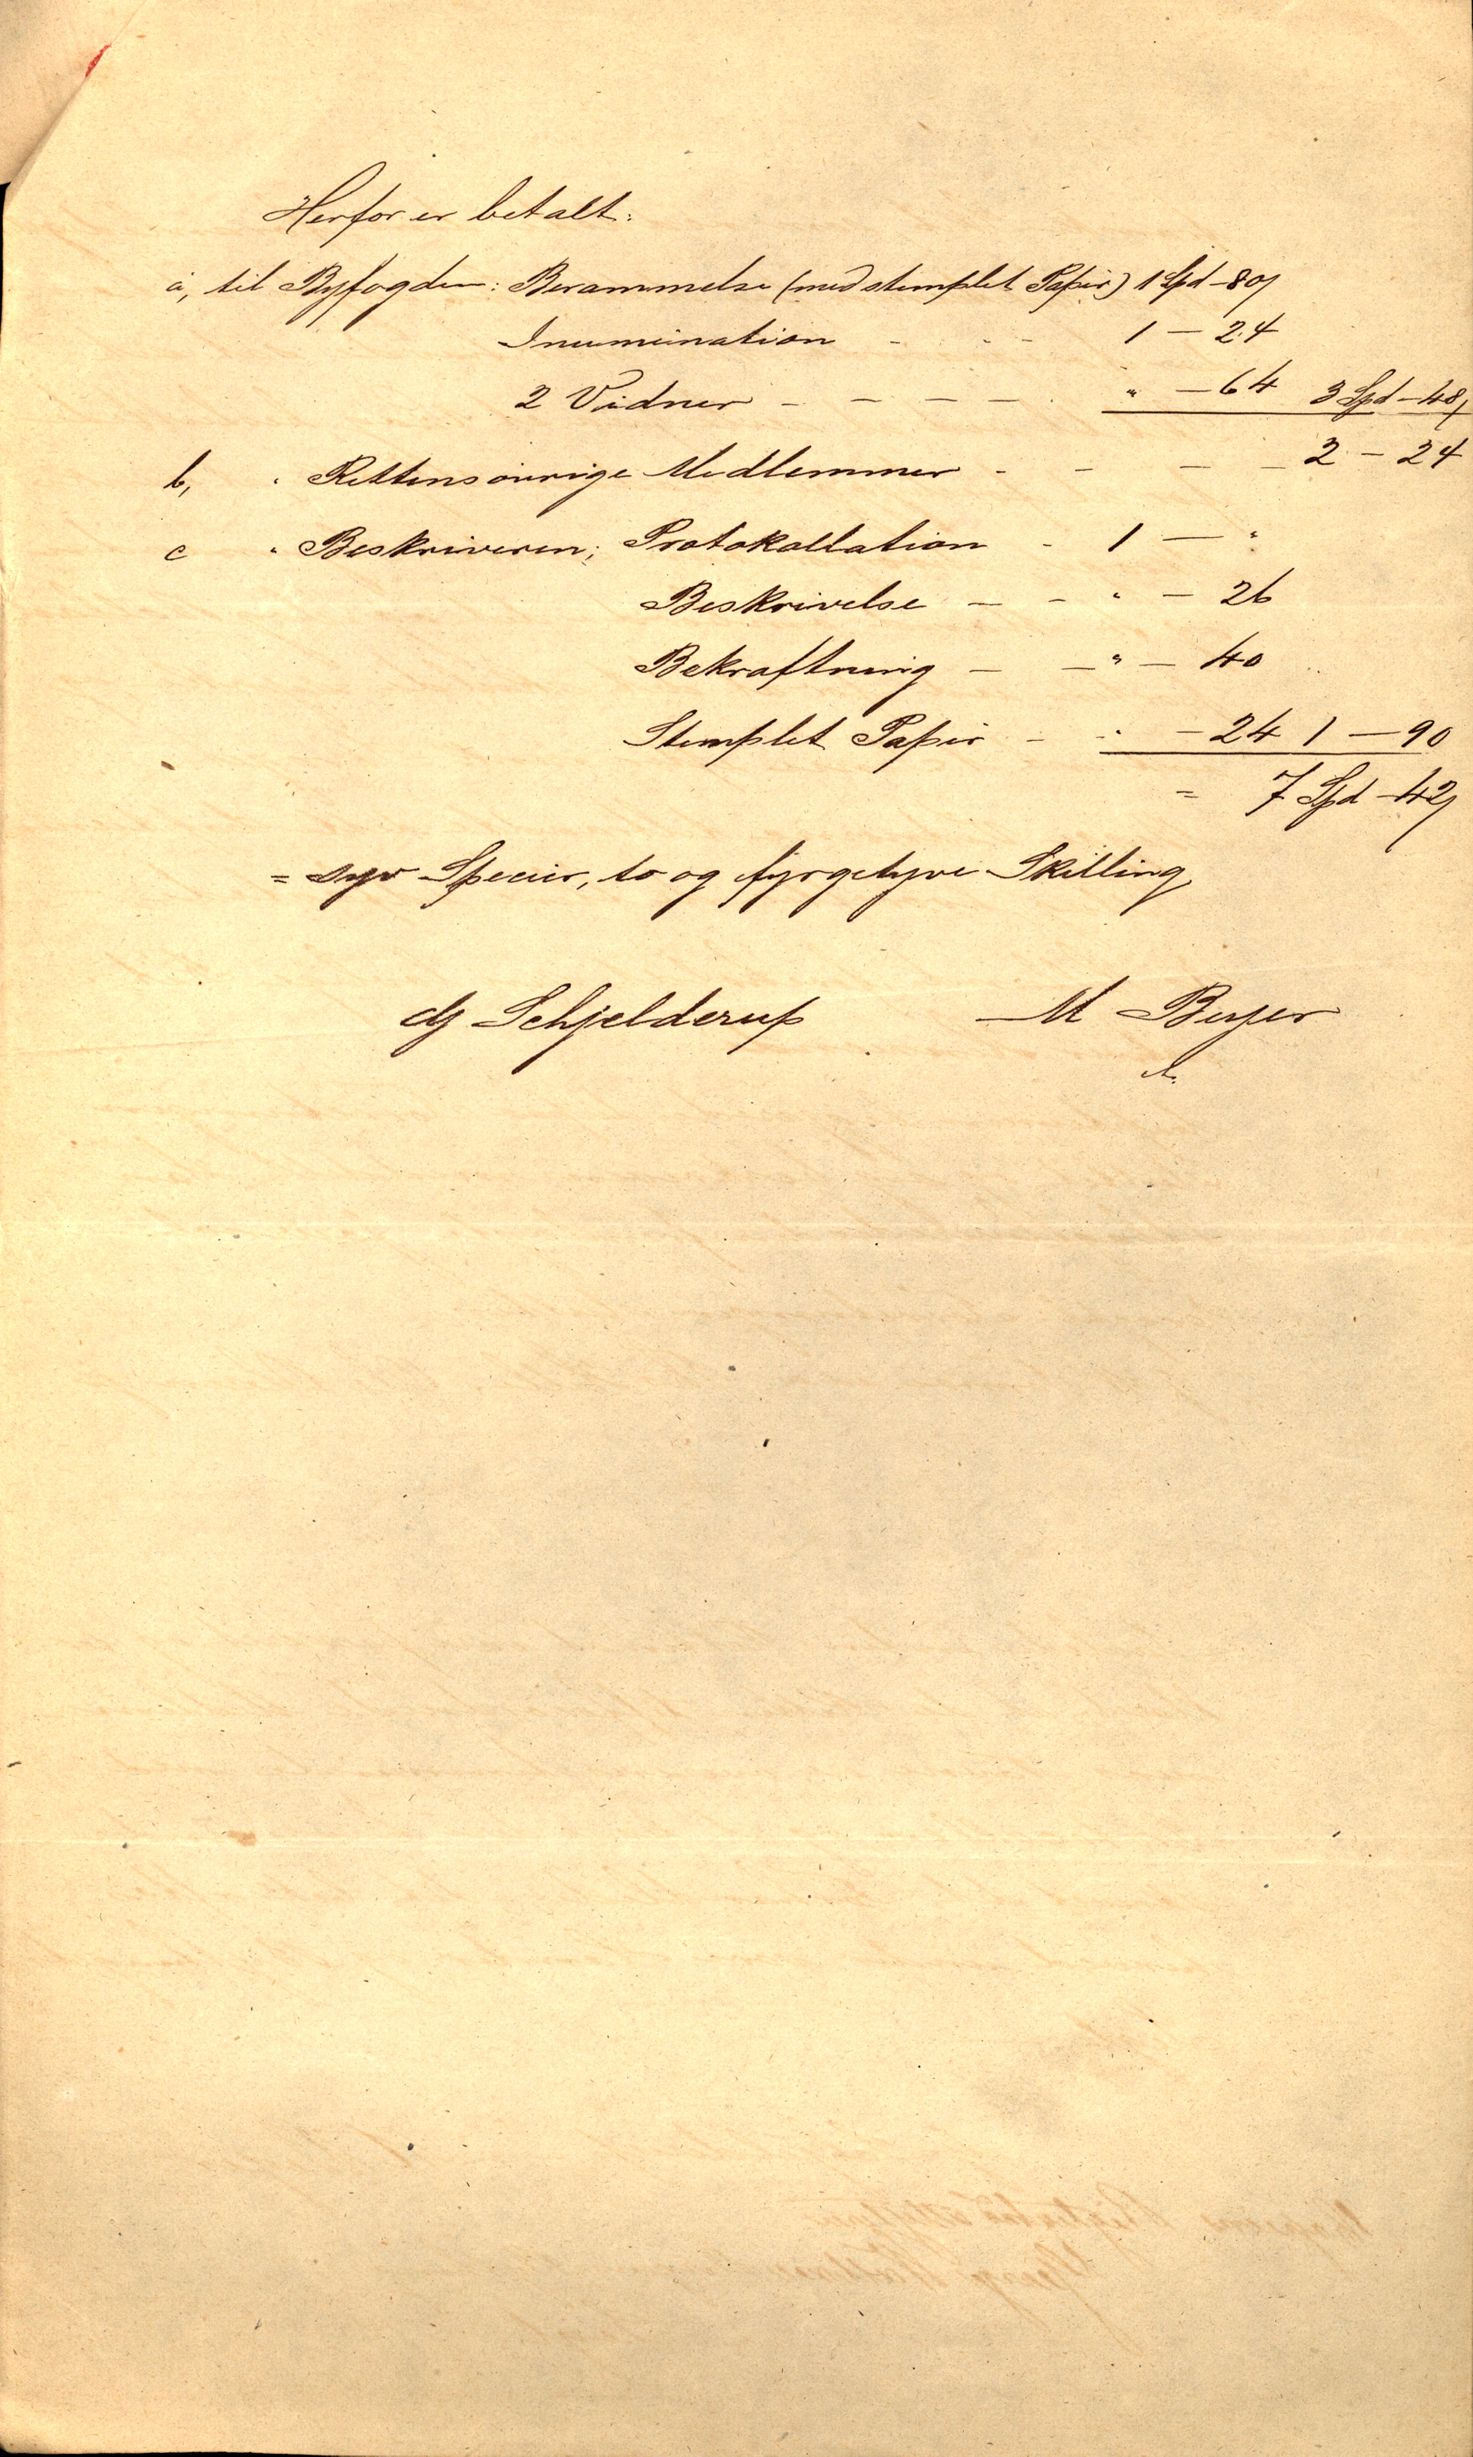 Herfor er betalt:
a, til Byfogden: Berammelse (med stemplet Papir) 1 Spd – 80ʒ
Incumination - - - 1 – 24
2 Vidner – – – – – " – 64 3 Spd – 48ʒ
b, " Rettens øvrige Medlemmer - - – – 2 – 24
c " Beskriveren; Protokollation - 1 – "
Beskrivelse – – " – 26
Bekræftning – – " – 40
Stemplet Papir – - " – 24 1 – 90
= 7 Spd – 42ʒ
= syv Specier, to og fyrgetyve Skilling,
Schjelderup M Beyer